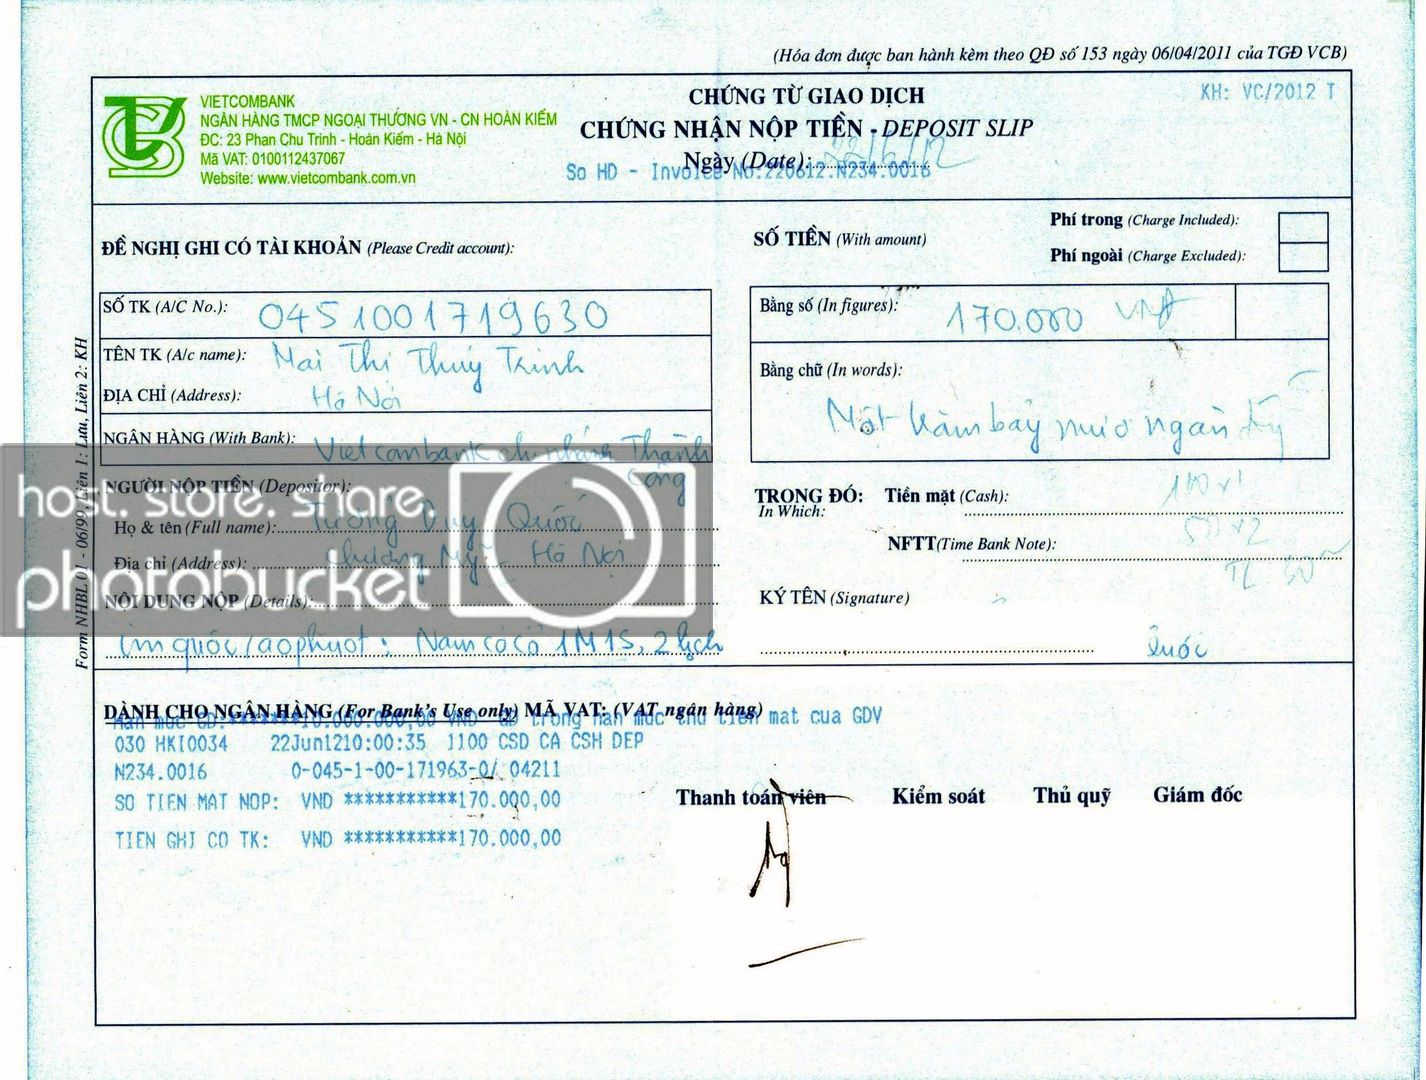 (Hóa đơn được ban hành kèm theo QĐ số 153 ngày 06/04/2011 của TGĐ VCB)
VIETCOMBANK
NGÂN HÀNG TMCP NGOẠI THƯƠNG VN - CN HOÀN KIẾM
ĐC: 23 Phan Chu Trinh - Hoàn Kiếm - Hà Nội
Mã VAT: 0100112437067
Website: www.vietcombank.com.vn
CHỨNG TỪ GIAO DỊCH
CHỨNG NHẬN NỘP TIỀN - DEPOSIT SLIP
Ngày (Date): 22/6/12
So HD - Invoice No:220612.N234.0016
KH: VC/2012 T
ĐỀ NGHỊ GHI CÓ TÀI KHOẢN (Please Credit account):
SỐ TK (A/C No.): 0451001719630
TÊN TK (A/c name): Mai Thi Thuý Trinh
ĐỊA CHỈ (Address): Hà Nội
NGÂN HÀNG (With Bank): Vietcombank chi nhánh Thành Công
NGƯỜI NỘP TIỀN (Depositor):
Họ & tên (Full name): Tưởng Duy Quốc
Địa chỉ (Address): Chương Mỹ - Hà Nội
NỘI DUNG NỘP (Details):
quốc/aophuot: Nam cờ cổ 1M1S, 2 lịch
SỐ TIỀN (With amount)
Phí trong (Charge Included):
Phí ngoài (Charge Excluded):
Bằng số (In figures): 170.000 VNĐ
Bằng chữ (In words):
Một trăm bảy mươi ngàn
TRONG ĐÓ: Tiền mặt (Cash):
In Which:
NFTT(Time Bank Note):
50x2
KÝ TÊN (Signature)
Quốc
Form NHBL 01 - 06/99, Liên 1: Lưu, Liên 2: KH
host. store. share.
photobucket
DÀNH CHO NGÂN HÀNG (For Bank's Use only) MÃ VAT: (VAT ngân hàng)
Han muc GD:*******10.000.000,00 VND GD trong han muc thu tien mat cua GDV
030 HKI0034 22Jun1210:00:35 1100 CSD CA CSH DEP
N234.0016 0-045-1-00-171963-0/ 04211
SO TIEN MAT NOP: VND ***********170.000,00
TIEN GHI CO TK: VND ***********170.000,00
Thanh toán viên Kiểm soát Thủ quỹ Giám đốc